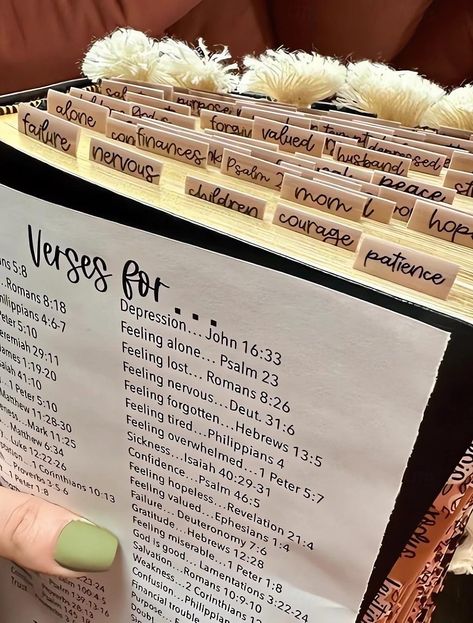 purpose
alone
failure
finances
nervous
valued
husband
Psalm
peace
children
mom
hope
courage
patience
Verses for ...
5:8
...Romans 8:18
Philippians 4:6-7
Peter 5:10
Jeremiah 29:11
James 1:19-20
Isaiah 41:10
...1 Peter 5:10
Matthew 11:28-30
Mark 11:25
Matthew 6:34
Luke 12:22-26
1 Corinthians 10:13
Proverbs 3:5-6
1 Peter 1:8
23-24
Psalm 100:4-5
Psalm 139:13-16
Trust
Depression...John 16:33
Feeling alone...Psalm 23
Feeling lost...Romans 8:26
Feeling nervous...Deut. 31:6
Feeling forgotten...Hebrews 13:5
Feeling tired...Philippians 4
Feeling overwhelmed...1 Peter 5:7
Sickness...Isaiah 40:29-31
Confidence...Psalm 46:5
Feeling hopeless...Revelation 21:4
Feeling valued...Ephesians 1:4
Failure...Deuteronomy 7:6
Gratitude...Hebrews 12:28
Feeling miserable...1 Peter 1:8
God is good...Lamentations 3:22-24
Salvation...Romans 10:9-10
Weakness...2 Corinthians 12
Confusion...Philippian
Financial trouble
Purpose...
Doubt